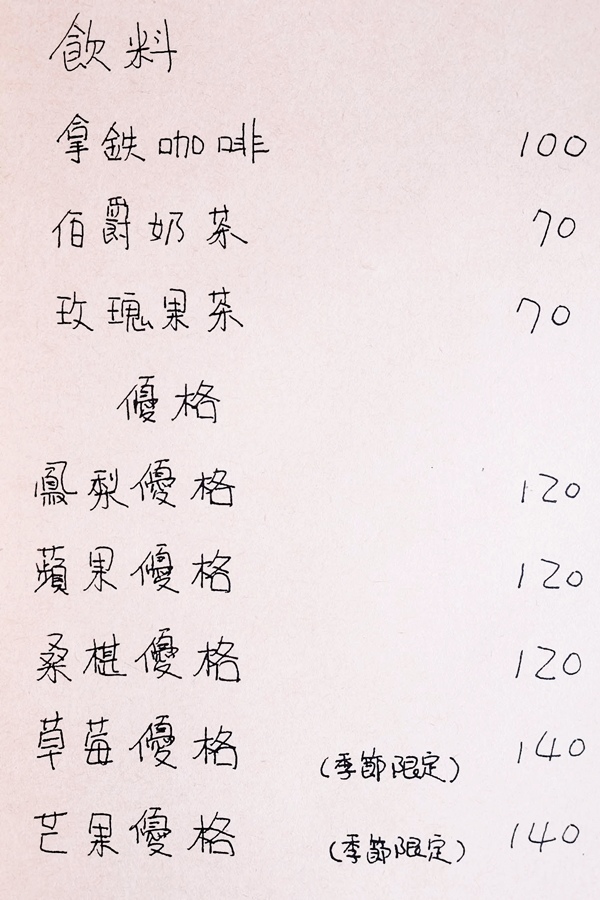 飲料
拿鉄咖啡 100
伯爵奶茶 70
玫瑰果茶 70
優格
鳳梨優格 120
蘋果優格 120
桑椹優格 120
草莓優格 (季節限定) 140
芒果優格 (季節限定) 140